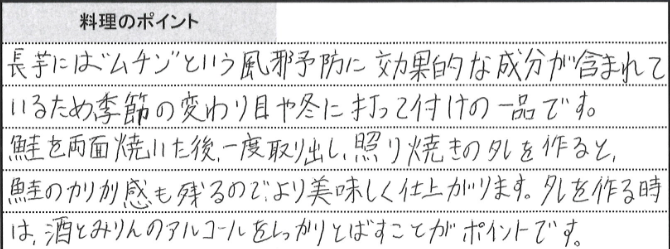 料理のポイント
長芋には"ムチン"という風邪予防に効果的な成分が含まれて
いるため季節の変わり目や冬に打って付けの一品です。
鮭を両面焼いた後、一度取り出し、照り焼きのタレを作ると、
鮭のカリカリ感も残るのでより美味しく仕上がります。タレを作る時
は、酒とみりんのアルコールをしっかりとばすことがポイントです。